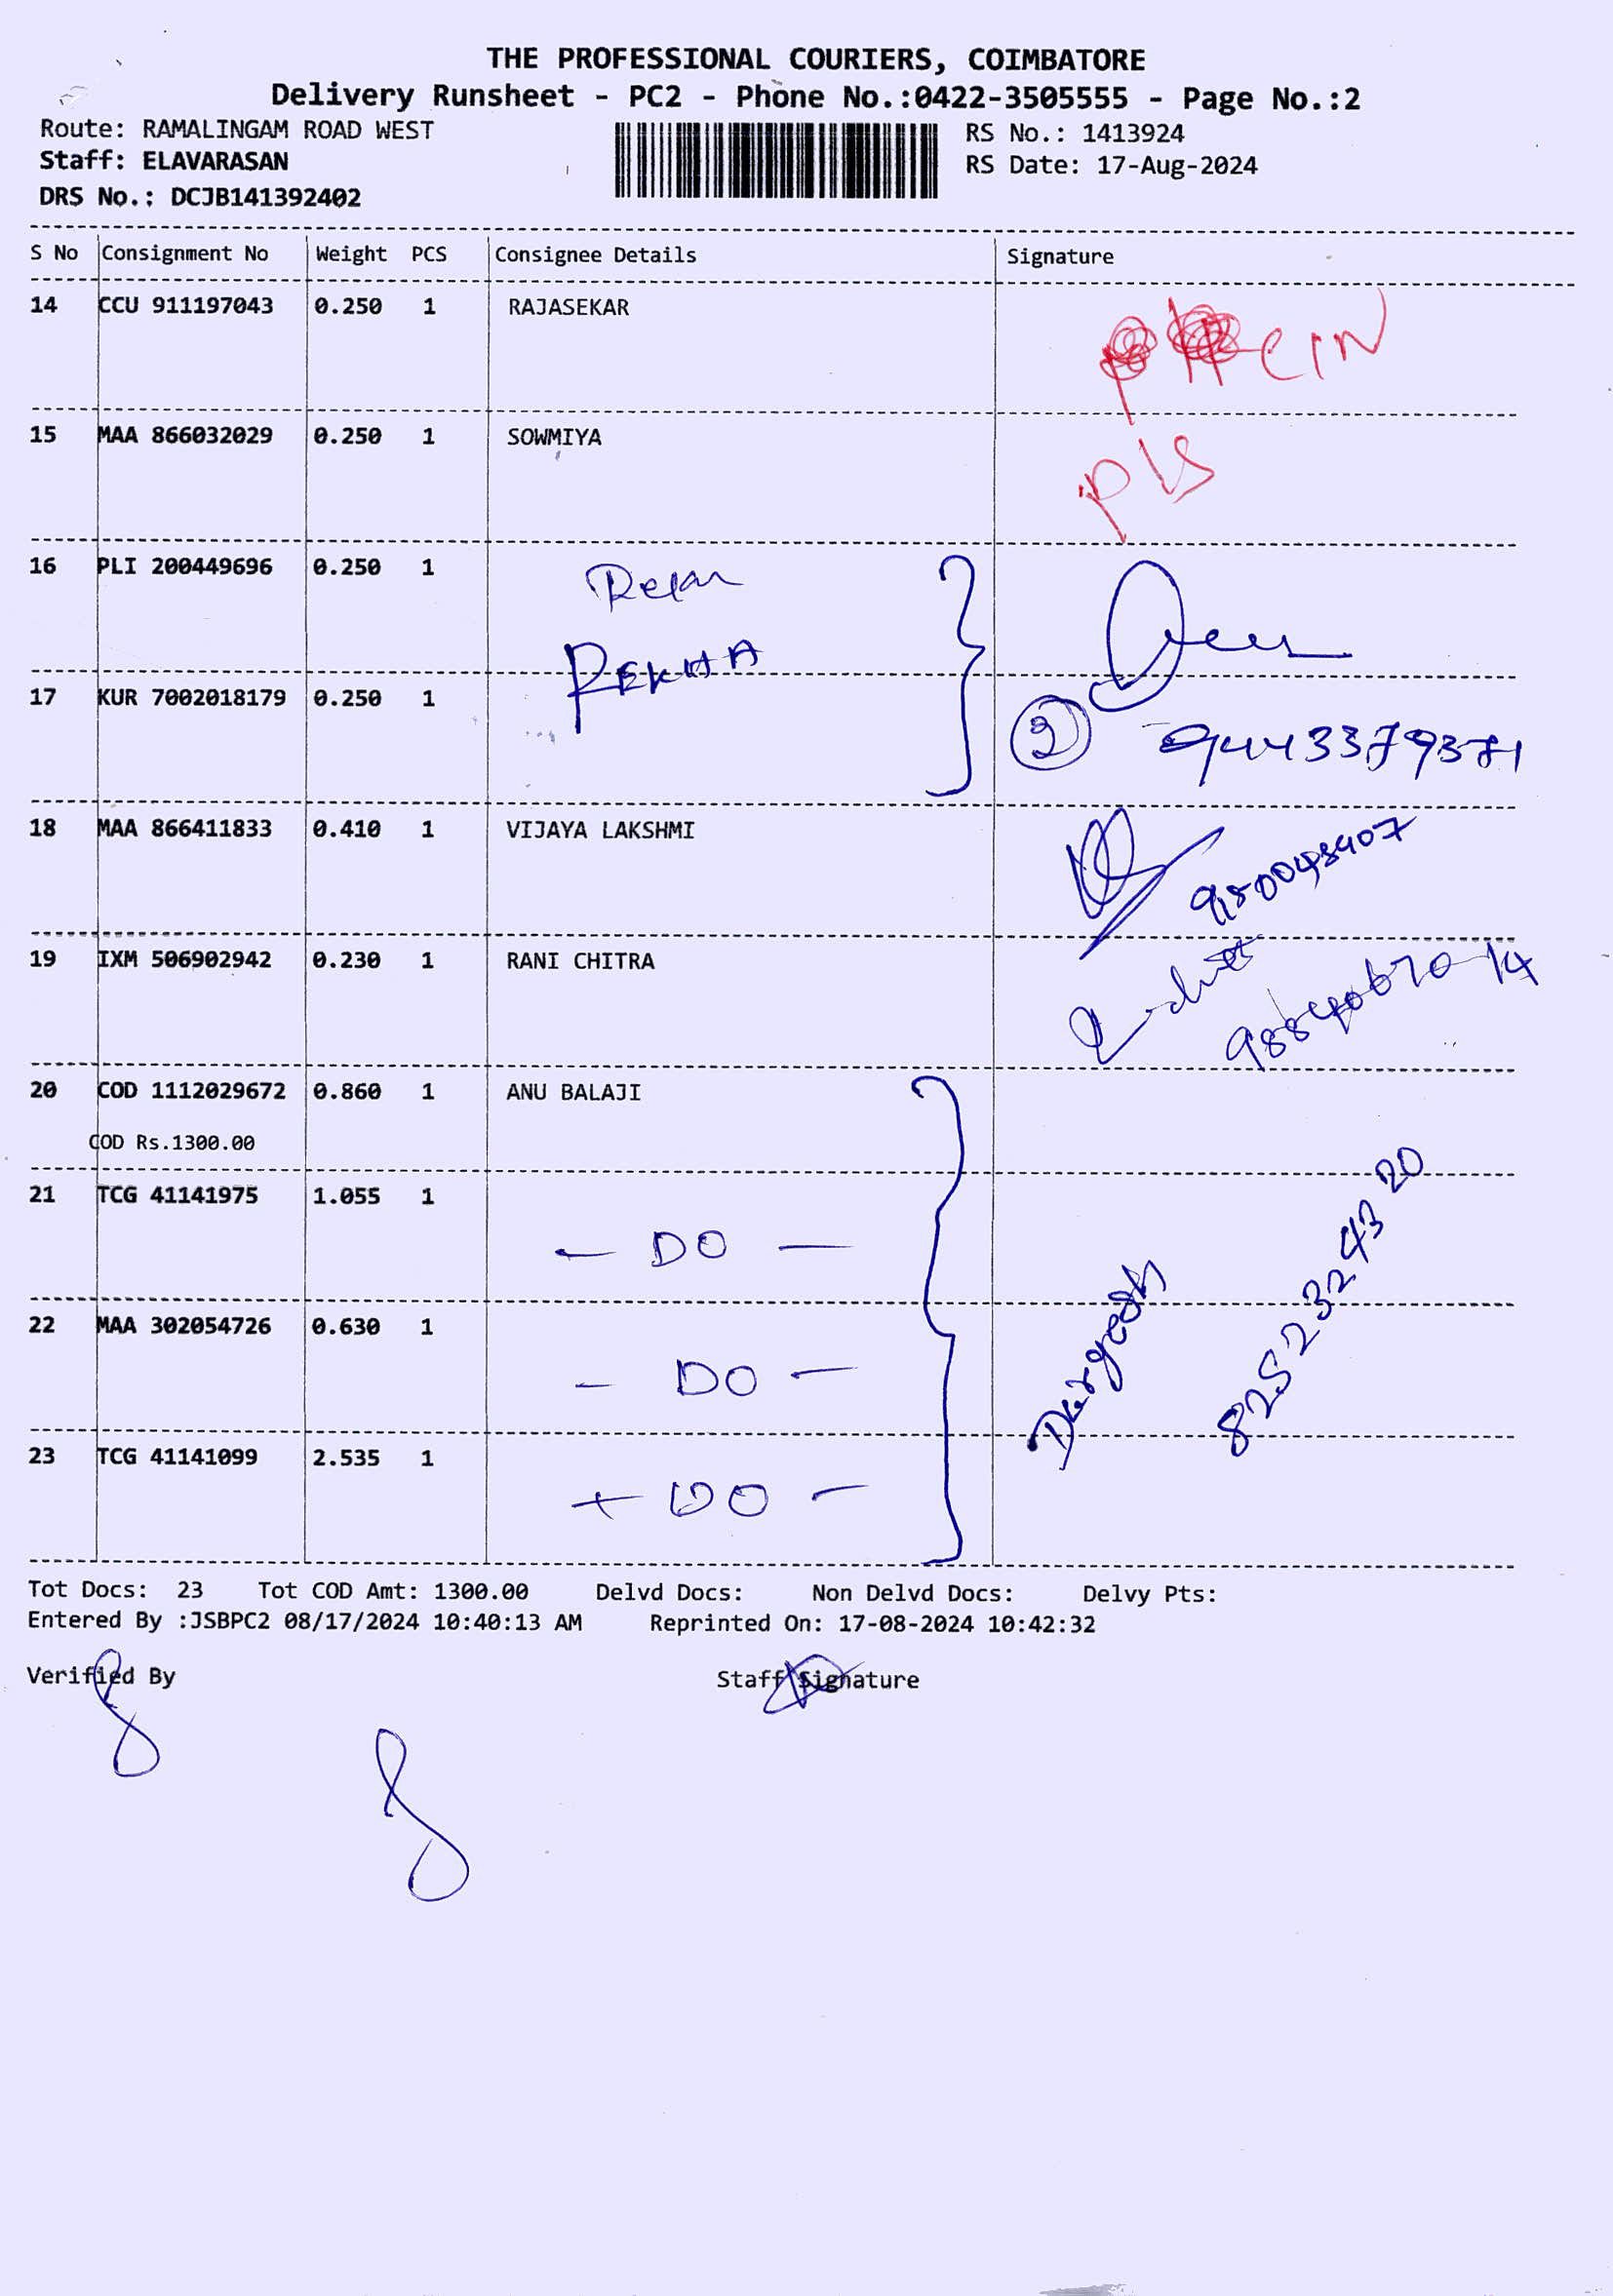 THE PROFESSIONAL COURIERS, COIMBATORE
Delivery Runsheet - PC2 - Phone No.:0422-3505555 - Page No.:2
Route: RAMALINGAM ROAD WEST
RS No.: 1413924
Staff: ELAVARASAN
RS Date: 17-Aug-2024
DRS No.: DCJB141392402
S No Consignment No Weight PCS Consignee Details Signature
14 CCU 911197043 0.250 1 RAJASEKAR CIN
15 MAA 866032029 0.250 1 SOWMIYA
16 PLI 200449696 0.250 1
REKHA
17 KUR 7002018179 0.250 1
2
18 MAA 866411833 0.410 1 VIJAYA LAKSHMI
19 IXM 506902942 0.230 1 RANI CHITRA
20 COD 1112029672 0.860 1 ANU BALAJI
COD Rs.1300.00
21 TCG 41141975 1.055 1
- DO -
22 MAA 302054726 0.630 1
- DO -
8252324320
23 TCG 41141099 2.535 1
- DO -
Tot Docs: 23 Tot COD Amt: 1300.00 Delvd Docs: Non Delvd Docs: Delvy Pts:
Entered By :JSBPC2 08/17/2024 10:40:13 AM Reprinted On: 17-08-2024 10:42:32
Verified By Staff Signature